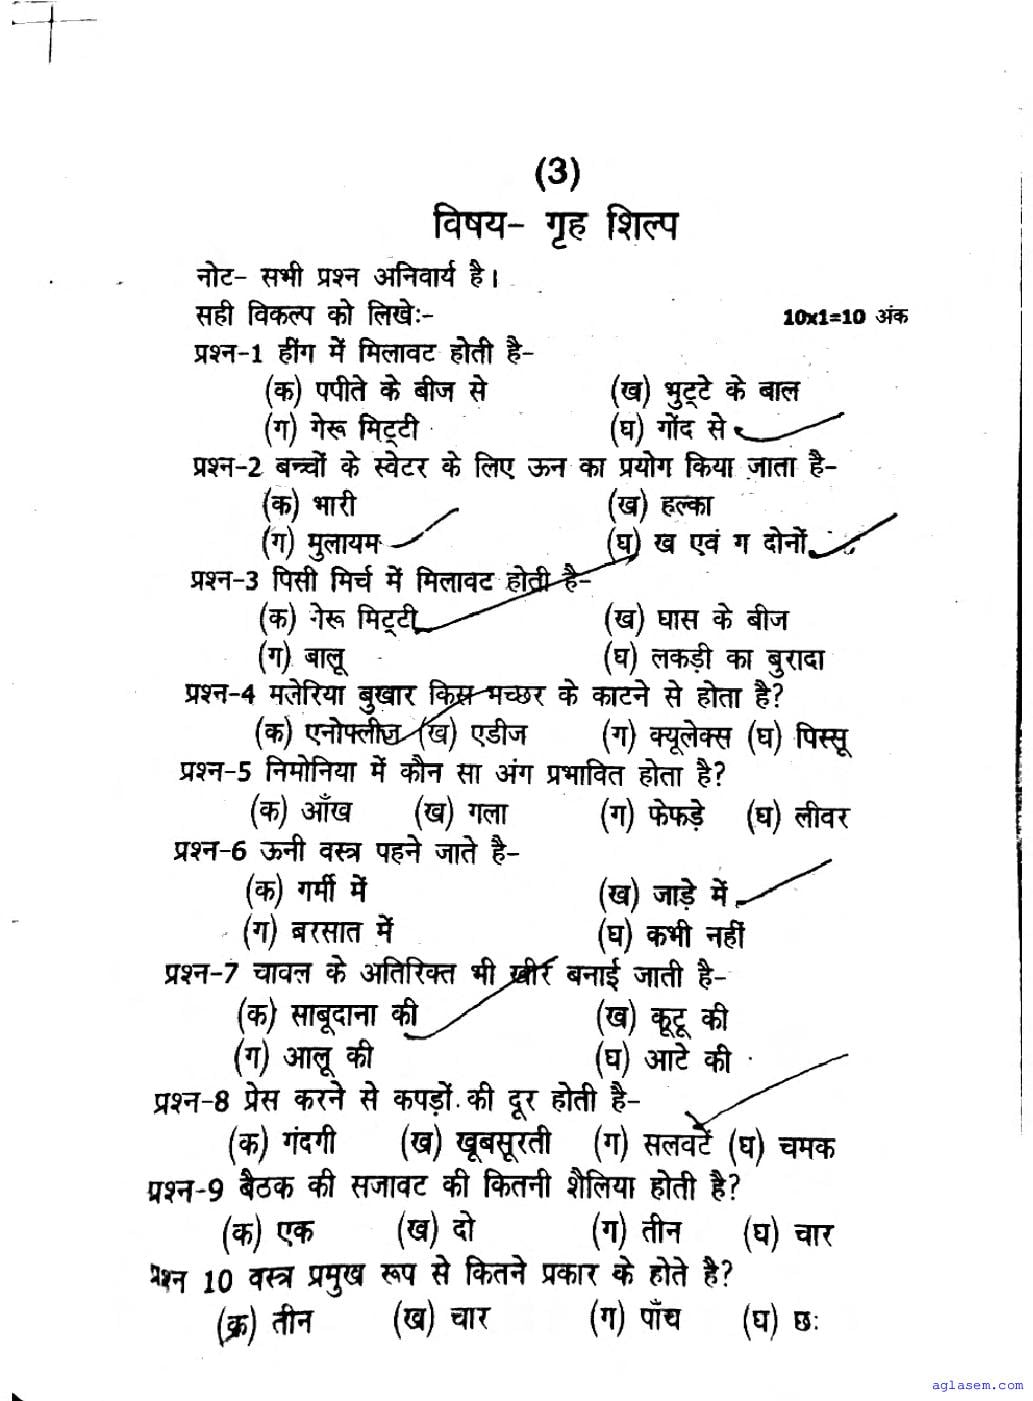 (3)
विषय- गृह शिल्प
नोट- सभी प्रश्न अनिवार्य है।
सही विकल्प को लिखेः-
10x1=10 अंक
प्रश्न-1 हींग में मिलावट होती है-
(क) पपीते के बीज से (ख) भुट्टे के बाल
(ग) गेरू मिट्टी (घ) गोंद से
प्रश्न-2 बच्चों के स्वेटर के लिए ऊन का प्रयोग किया जाता है-
(क) भारी (ख) हल्का
(ग) मुलायम (घ) ख एवं ग दोनों
प्रश्न-3 पिसी मिर्च में मिलावट होती है-
(क) गेरू मिट्टी (ख) घास के बीज
(ग) बालू (घ) लकड़ी का बुरादा
प्रश्न-4 मलेरिया बुखार किस मच्छर के काटने से होता है?
(क) एनोफ्लीज (ख) एडीज (ग) क्यूलेक्स (घ) पिस्सू
प्रश्न-5 निमोनिया में कौन सा अंग प्रभावित होता है?
(क) आँख (ख) गला (ग) फेफड़े (घ) लीवर
प्रश्न-6 ऊनी वस्त्र पहने जाते है-
(क) गर्मी में (ख) जाड़े में
(ग) बरसात में (घ) कभी नहीं
प्रश्न-7 चावल के अतिरिक्त भी खीर बनाई जाती है-
(क) साबूदाना की (ख) कूटू की
(ग) आलू की (घ) आटे की
प्रश्न-8 प्रेस करने से कपड़ों की दूर होती है-
(क) गंदगी (ख) खूबसूरती (ग) सलवटें (घ) चमक
प्रश्न-9 बैठक की सजावट की कितनी शैलिया होती है?
(क) एक (ख) दो (ग) तीन (घ) चार
प्रश्न 10 वस्त्र प्रमुख रूप से कितने प्रकार के होते है?
(क) तीन (ख) चार (ग) पाँच (घ) छः
aglasem.com